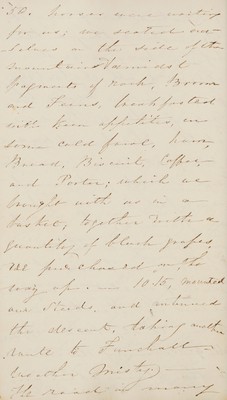 The horses were waiting
for us; we seated our-
selves on the side of the
mountain & amidst
fragments of rock, Broom
and Ferns, breakfasted
with keen appetites, on
some cold fowl, ham,
Bread, Biscuit, Coffee,
and Porter; which we
brought with us in a
basket, together with a
quantity of black grapes,
we purchased on the
way up. — 10 15, mounted
our Steeds, and
the descent, taking another
route to Funchall
weather misty, —
the road in many